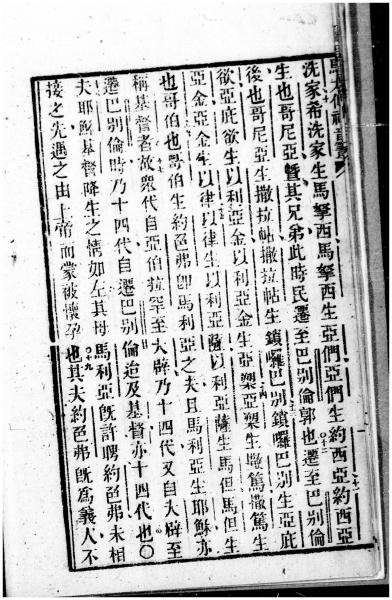 洗家希洗家生馬拏西馬拏西生亞們亞們生約西亞約西亞
生也哥尼亞暨其兄弟此時民遷至巴別倫郭也遷至巴別倫
後也哥尼亞生撒拉帖撒拉帖生鎖囉巴別鎖囉巴別生亞庇
欲亞庇欲生以利亞金以利亞金生亞槊亞槊生撒篤撒篤生
亞金亞金生以律以律生以利亞薩以利亞薩生馬但馬但生
也哥伯也哥伯生約色弗卽馬利亞之夫且馬利亞生耶穌亦
稱基督者故眾代自亞伯拉罕至大辟乃十四代又自大辟至
遷巴別倫時乃十四代自遷巴別倫迨及基督亦十四代也〇
夫耶穌基督降生之情如左其母馬利亞旣許聘約色弗未相
接之先遇之由上帝而蒙被懷孕也其夫約色弗旣爲義人不